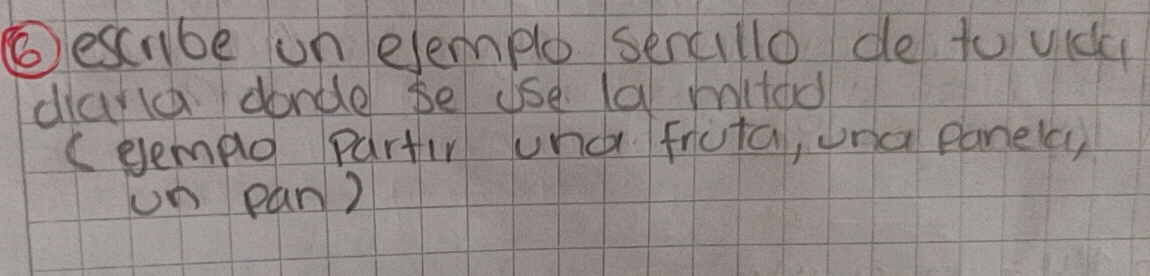 6 escribe un ejemplo sencillo de tu vida
diaria donde se use la mitad
(ejemplo partir una fruta, una panela,
un pan)